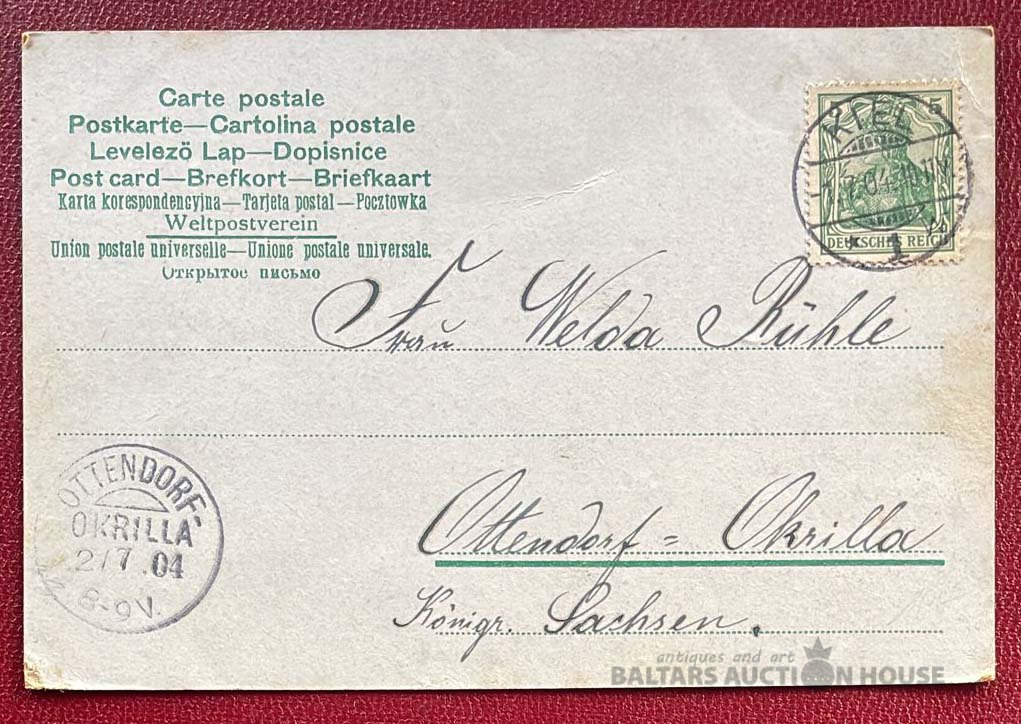 Carte postale
Postkarte—Cartolina postale
Levelező Lap—Dopisnice
Post card—Brefkort—Briefkaart
Karta korespondencyjna—Tarjeta postal—Pocztowka
Weltpostverein
Union postale universelle—Unione postale universale.
Открытое письмо
5
DEUTSCHES REICH
KIEL
7.04
1
Frau Welda Rühle
OTTENDORF-
OKRILLA
2/7.04
8-9V.
Ottendorf = Okrilla
Königr. Sachsen.
antiques and art
BALTARS AUCTION HOUSE